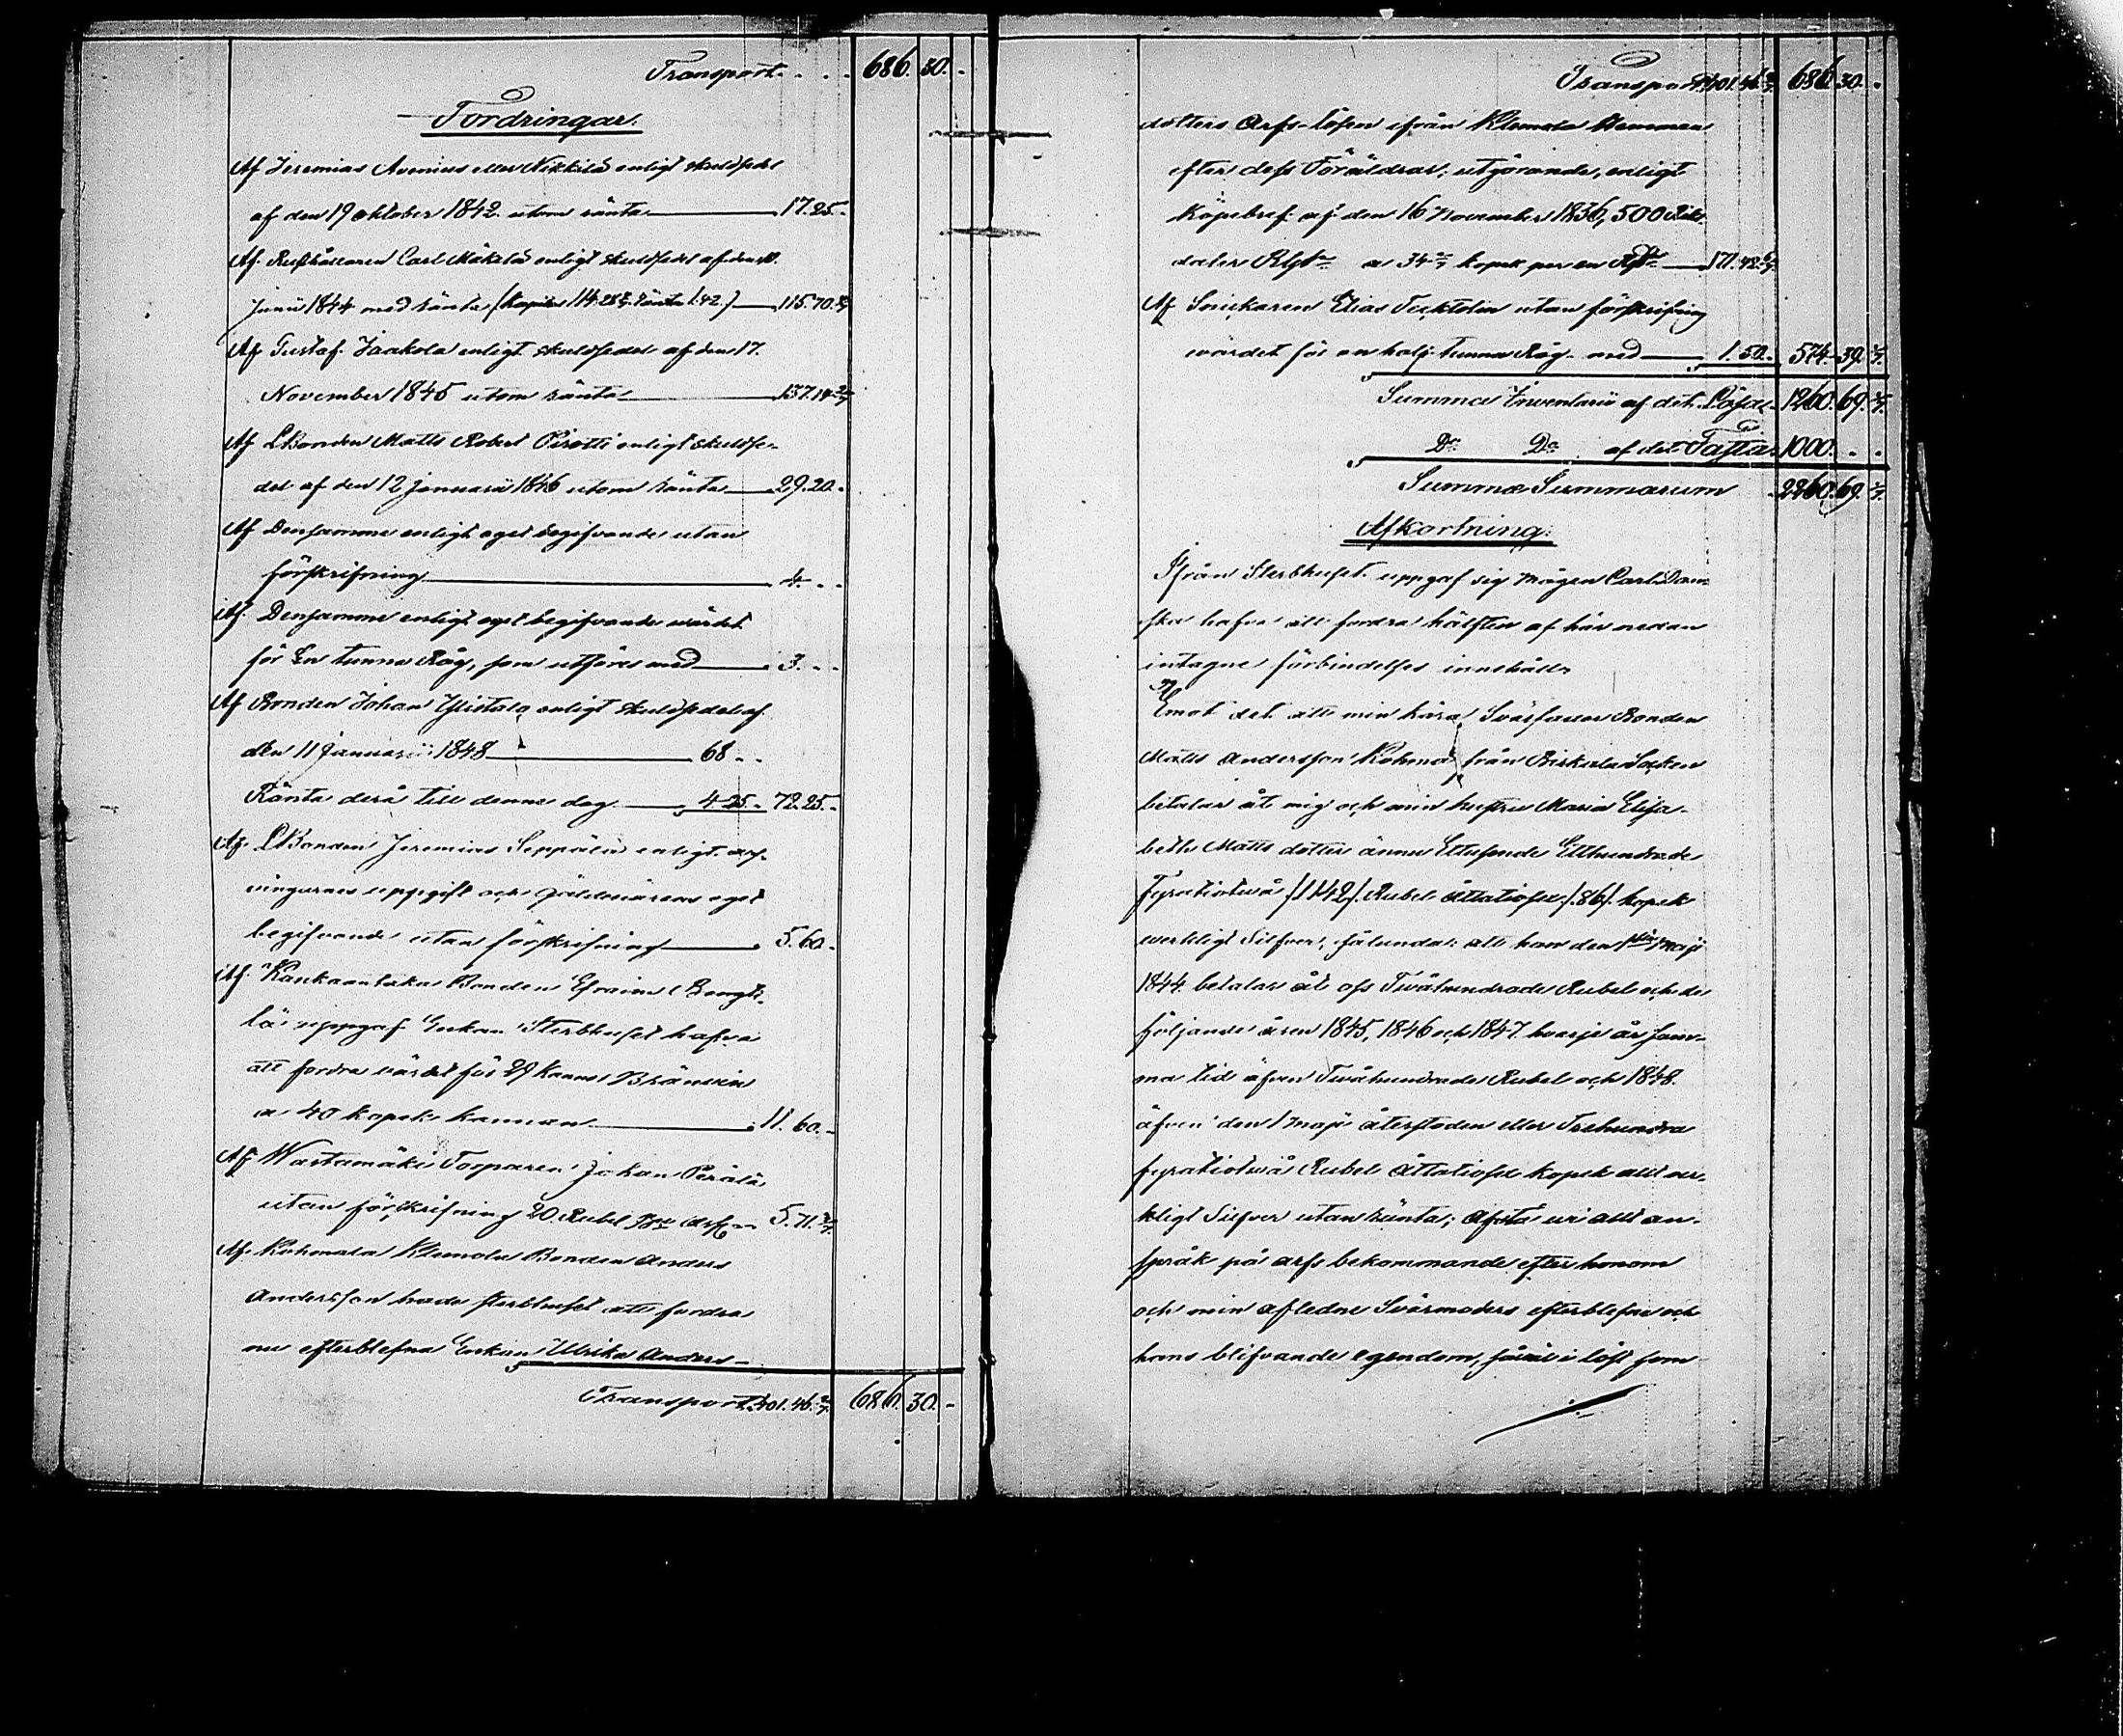 Transport - - - 686. 30. -
Fordringar.
Af Jeremias Avenius eller Nikkilä enligt skuldsedel
af den 19 oktober 1842. utom ränta 17. 25. -
Af Rusthållaren Carl Mäkelä enligt skuldsedel af den
Junii 1844 med ränta (Kapital 114. 28 4/7. ränta 1. 42.) 115. 70. 4/7
Af Gustaf Jaakola enligt skuldsedel af den 17.
November 1845 utom ränta 137. 14 2/7
Af LBonden Matts Robert Pirotti enligt skuldse-
del af den 12 Januarii 1846 utom ränta 29. 20. -
Af Densamme enligt eget begifvande utan
förskrifning 4. - -
Af Densamme enligt eget begifvande värdet
för En tunna Råg, som utföres med 3. - -
Af Bonden Johan Ylistalo enligt skuldsedel af
den 11 Januarii 1848 68 - -
Ränta derå till denna dag 4 25. - 72. 25. -
Af LBonden Jeremias Seppälä enligt arf-
vingarnes uppgift och gäldenärens eget
begifvande utan förskrifning 5. 60. -
Af Kankaantaka Bonden Efraim Bengts-
lä uppgaf Enkan Sterbhuset hafva
att fordra värdet för 29 kannor Bränvin
a 40 kopek kannan 11. 60. -
Af Wastamäki Torparen Johan Perälä
utan förskrifning 20. Rubel 5. 71. 3/7
Af Kuhmala Klemola Bonden Anders
Andersson hade sterbhuset att fordra
nu efterblefna Enkan Ulrika Anders-
Transport 401. 46. 2/7. 686. 30. -
Transport 401. 46. 2/7 686 30. -
dotters Arfs-lösen ifrån Klemola Hemman
efter dess Föräldrar, utgörande, enligt
Köpebref af den 16 November 1836, 500 Riks
daler Rgs a 34 2/7 kopek per en Rdr 171. 42. 6/7
Af Snickaren Elias Tucktolin utan förskrifning
värdet för en half tunna Råg med 1. 50. - 574. 39. 1/7.
Summa Inventarii af det Lösa 1260. 69. 1/7.
Do Do af det Fasta 1000. - -
Summa Summarum 2260. 69. 1/7.
Afkortning:
Ifrån Sterbhuset uppgaf sig mågen Carl Dam
ska hafva att fordra hälften af här nedan
intagne förbindelses innehåll
Emot det att min kära Svärfader Bonden
Matts Andersson Kohma från Birkala Socken
betalar åt mig och min hustru Maria Elisa-
beth Matts dotter ännu Ettusende Etthundrade
Fyratiotvå /1142/ Rubel åttatiosex /86/ kopek
verkligt Silfver, sålunda: att han den 1sta Maji
1844. betalar åt oss Tvåhundrade Rubel och de
följande åren 1845, 1846 och 1847. hvarje år sam-
ma tid äfven Tvåhundrade Rubel och 1848.
äfven den 1 Maji återstoden eller Trehundra
fyratiotvå Rubel Åttatiosex kopek allt ver-
kligt Silfver utan ränta; Afstå vi allt an-
språk på arfs bekommande efter honom
och min afledne Svärmoders efterblefne och
hans blifvande egendom, såväl i löst som